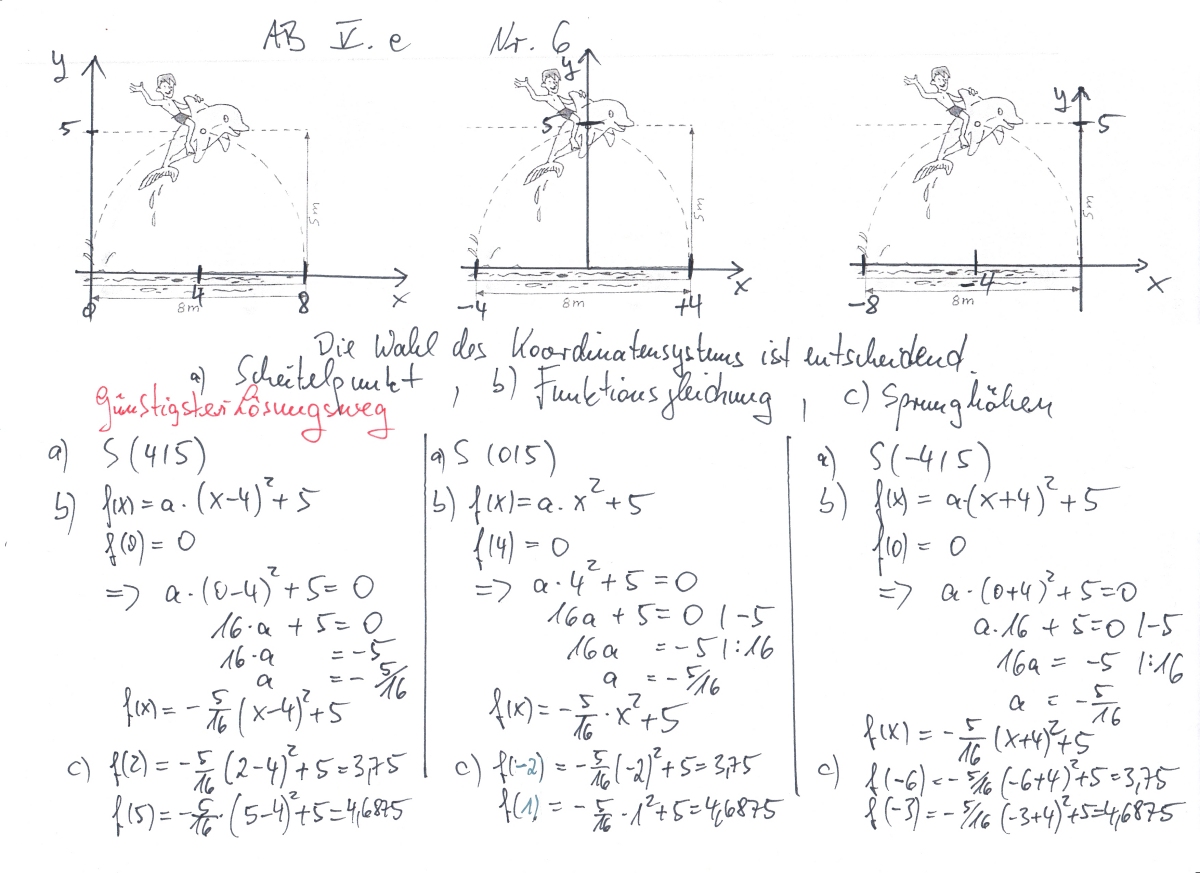 AB V. e Nr. 6
y
5
5 m
0 4 8 x
8 m
y
5
5 m
-4 +4 x
8 m
y
5
5 m
-8 -4 x
8 m
Die Wahl des Koordinatensystems ist entscheidend.
a) Scheitelpunkt, b) Funktionsgleichung, c) Sprunghöhen
Günstigster Lösungsweg
a) S(4|5)
b) f(x) = a · (x-4)² + 5
f(0) = 0
=> a · (0-4)² + 5 = 0
16·a + 5 = 0
16·a = -5
a = - 5/16
f(x) = - 5/16 (x-4)² + 5
c) f(2) = - 5/16 (2-4)² + 5 = 3,75
f(5) = - 5/16 · (5-4)² + 5 = 4,6875
a) S (0|5)
b) f(x) = a · x² + 5
f(4) = 0
=> a · 4² + 5 = 0
16a + 5 = 0 | -5
16a = -5 | :16
a = - 5/16
f(x) = - 5/16 · x² + 5
c) f(-2) = - 5/16 (-2)² + 5 = 3,75
f(1) = - 5/16 · 1² + 5 = 4,6875
a) S(-4|5)
b) f(x) = a·(x+4)² + 5
f(0) = 0
=> a · (0+4)² + 5 = 0
a·16 + 5 = 0 | -5
16a = -5 | :16
a = - 5/16
f(x) = - 5/16 (x+4)² + 5
c) f(-6) = - 5/16 (-6+4)² + 5 = 3,75
f(-3) = - 5/16 (-3+4)² + 5 = 4,6875